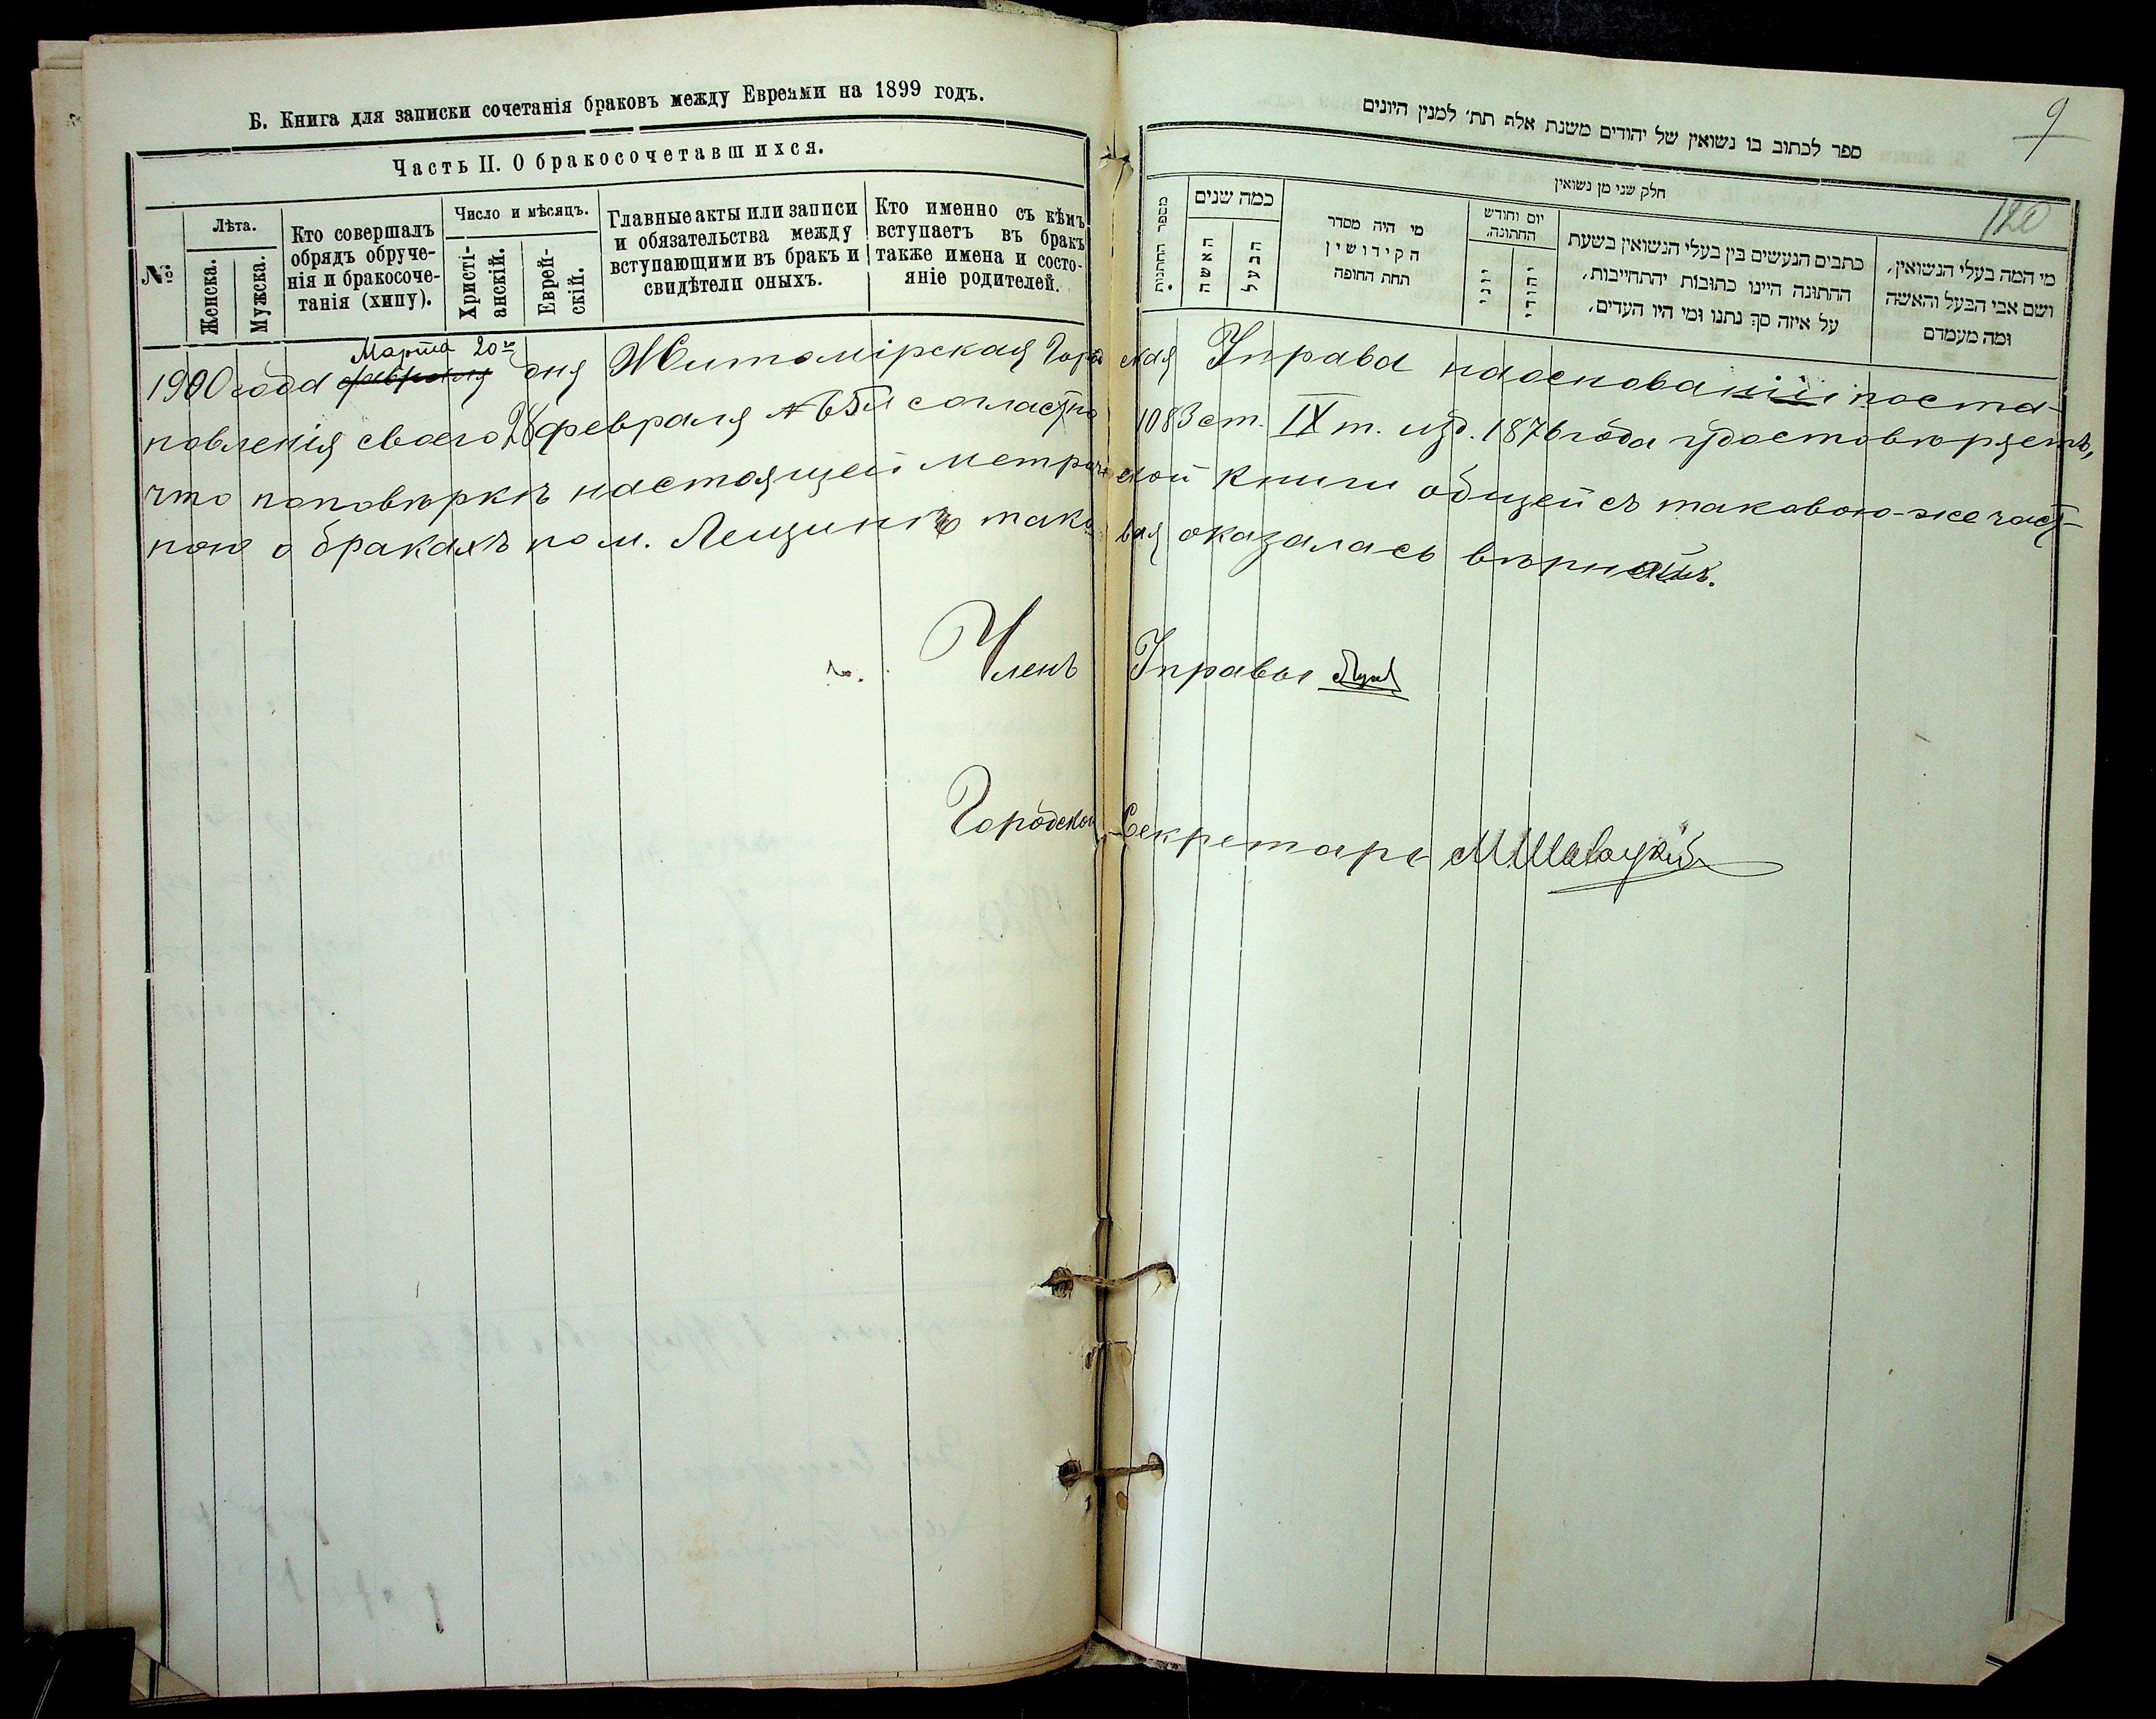 Б. Книга для записки сочетанія браковъ между Евреями на 1899 годъ.
Часть II. О бракосочетавшихся.
№
Лѣта.
Женска.
Мужска.
Кто совершалъ
обрядъ обруче-
нія и бракосоче-
танія (хипу).
Число и мѣсяцъ.
Христі-
анскій.
Еврей-
скій.
Главные акты или записи
и обязательства между
вступающими въ бракъ и
свидѣтели оныхъ.
Кто именно съ кѣмъ
вступаетъ въ бракъ
также имена и состо-
яніе родителей.
9
120
ספר לכתוב בו נשואין של יהודים משנת אלף תת׳ למנין היונים
חלק שני מן נשואין
מספר החתונות
כמה שנים
האשה
הבעל
מי היה מסדר
הקידושין
תחת החופה
יום וחודש
החתונה.
יוני
יהודי
כתבים הנעשים בין בעלי הנשואין בשעת
ההתונה היינו כתובות יהתחייבות,
על איזה סך נתנו ומי היו העדים,
מי המה בעלי הנשואין,
ושם אבי הבעל והאשה
ומה מעמדם
Марта 20го
1900 года февраля дня Житомірская Городская Управа на основаніи поста-
новленія своего 28 февраля согласно 1083 ст. IX т. изд. 1876 года удостовѣряетъ,
что по повѣркѣ настоящей метрической книги общей съ таковою-же част-
ною о бракахъ по м. Лещинъ таковая оказалась
Членъ Управы
Городской Секретарь